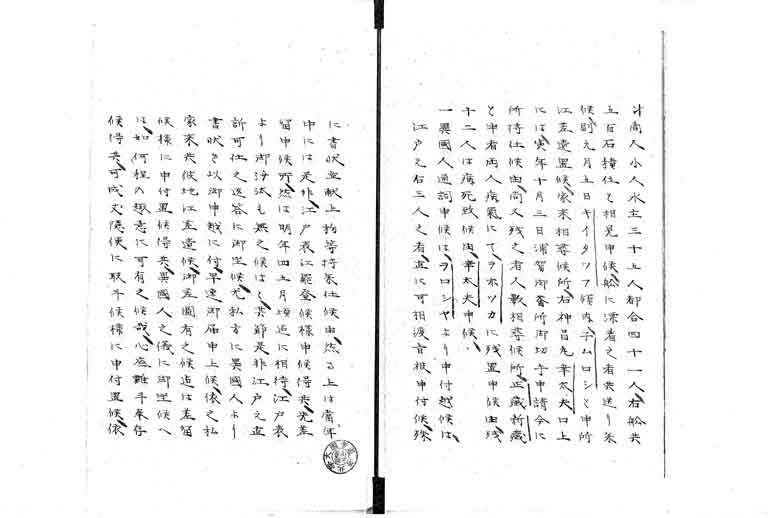 斗商人小人水主三十五人都合四十一人右船共
五百石積位と相見申候船に漂着之者共送り来
候剛元月五日キイタツフ領内子ムロシと申所
江差遣置候家来相尋候所右神昌丸幸太夫口上
には寅年十月三日浦賀御番所御切手申請今に
所持仕候由尚又残之者人数相尋候所正蔵新蔵
と申者両人病気にてヲホツカに残置申候由残
十二人は病死致候由幸太夫申候
一異國人通詞申候はヲロシヤより申付越候は
江戸之右三人之者直に可相渡旨被申付候殊
に書状並献上物等持来仕候由然る上は當年
中には是非江戸表江罷登候様申候得共先差
留申候所然は明年四五月頃迄に相待江戸表
より御沙汰も無之候はゝ其節是非江戸之直
訴可仕之返答に御坐候尤私方に異國人より
書状を以御申越に付早速御届申上候依之私
家来共彼地江差遣候御差圖有之候迄は差留
候様に申付置候得共異國人之儀に御坐候へ
は如何程の趣意に可有之候哉心底難斗奉存
候得共可成丈隠便に取斗候様に申付置候依